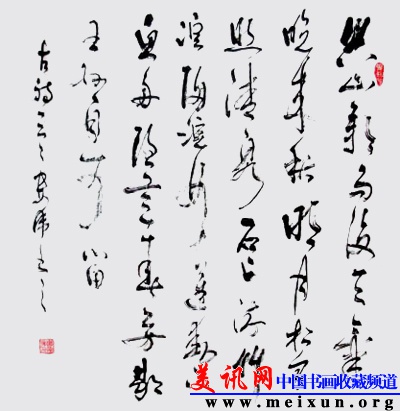 空山新雨後天氣
晚來秋明月松間
照清泉石上流竹
喧歸浣女蓮動下
漁舟隨意春芳歇
王孫自可留
古詩
美讯网 中国书画收藏频道
www.meixun.org